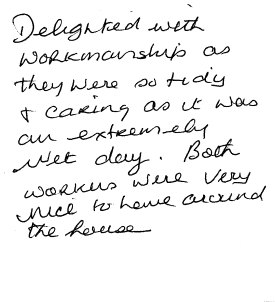 Delighted with
workmanship as
they were so tidy
& caring as it was
an extremely
wet day. Both
workers were very
nice to have around
the house